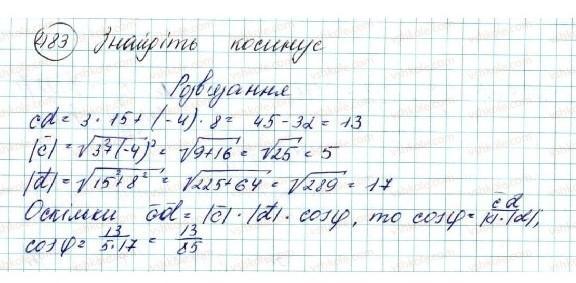 483 Знайдіть косинус
Розв'язання
cd = 3 · 15 + (-4) · 8 = 45 - 32 = 13
|c̅| = √3²+(-4)² = √9+16 = √25 = 5
|d̅| = √15²+8² = √225+64 = √289 = 17
Оскільки c̅d̅ = |c̅| · |d̅| · cosφ, то cosφ = c̅d̅/|c̅|·|d̅|,
cosφ = 13/5·17 = 13/85